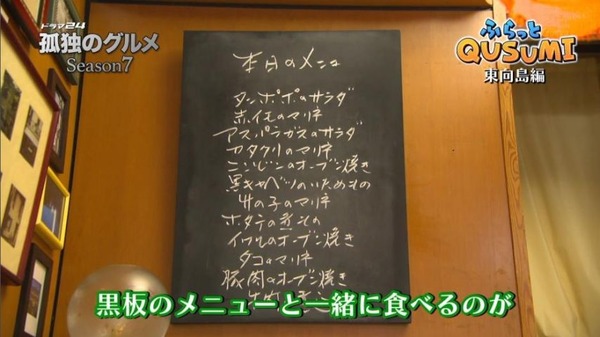 ドラマ24
孤独のグルメ
Season7
ふらっと
QUSUMI
東向島編
本日のメニュー
タンポポのサラダ
赤イモのマリネ
アスパラガスのサラダ
カタクリのマリネ
ニンジンのオーブン焼き
黒キャベツのいためもの
竹の子のマリネ
ホタテの煮もの
イワシのオーブン焼き
タコのマリネ
豚肉のオーブン焼き
黒板のメニューと一緒に食べるのが